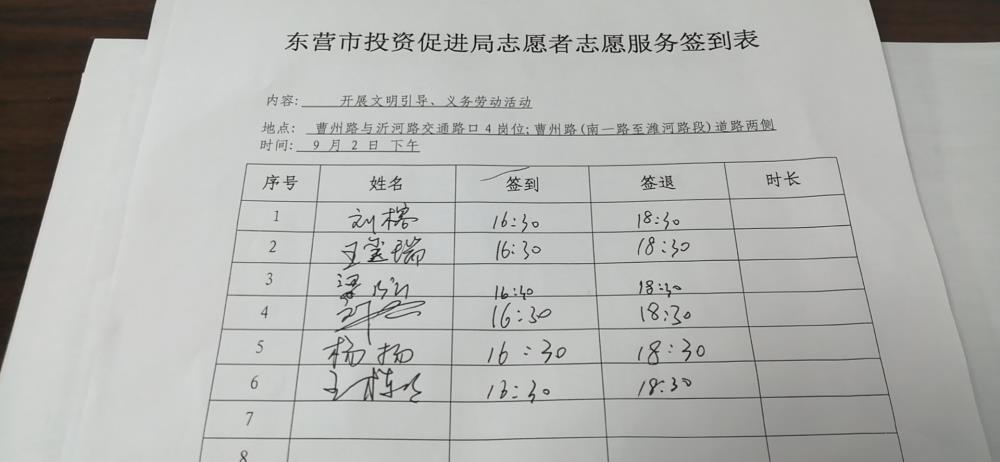 东营市投资促进局志愿者志愿服务签到表
内容: 开展文明引导、义务劳动活动
地点: 曹州路与沂河路交通路口4岗位;曹州路(南一路至潍河路段)道路两侧
时间: 9 月 2 日 下午
序号 姓名 签到 签退 时长
1 刘榕 16:30 18:30
2 王玺瑞 16:30 18:30
3 16:30 18:30
4 16:30 18:30
5 杨扬 16:30 18:30
6 16:30 18:30
7
8